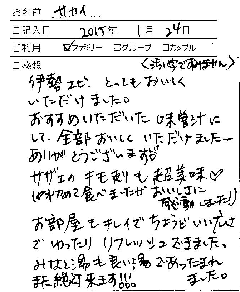 お名前 サカイ
ご記入日 2015年 1月 24日
ご利用 ☑ファミリー □グループ □カップル
ご感想 (汚い字でありません)
伊勢エビ、とってもおいしく
いただけました。
おすすめいただいた味噌汁に
して、全部おいしくいただけましたー
ありがとうございます
サザエのキモ刺も超美味♡
初めて食べましたがおいしさに
感動しました!)
お部屋もキレイでちょうどいい広さ
でゆったりリフレッシュできました。
みなと湯も良い湯であったまれ
ました
また絶対来ます!!!